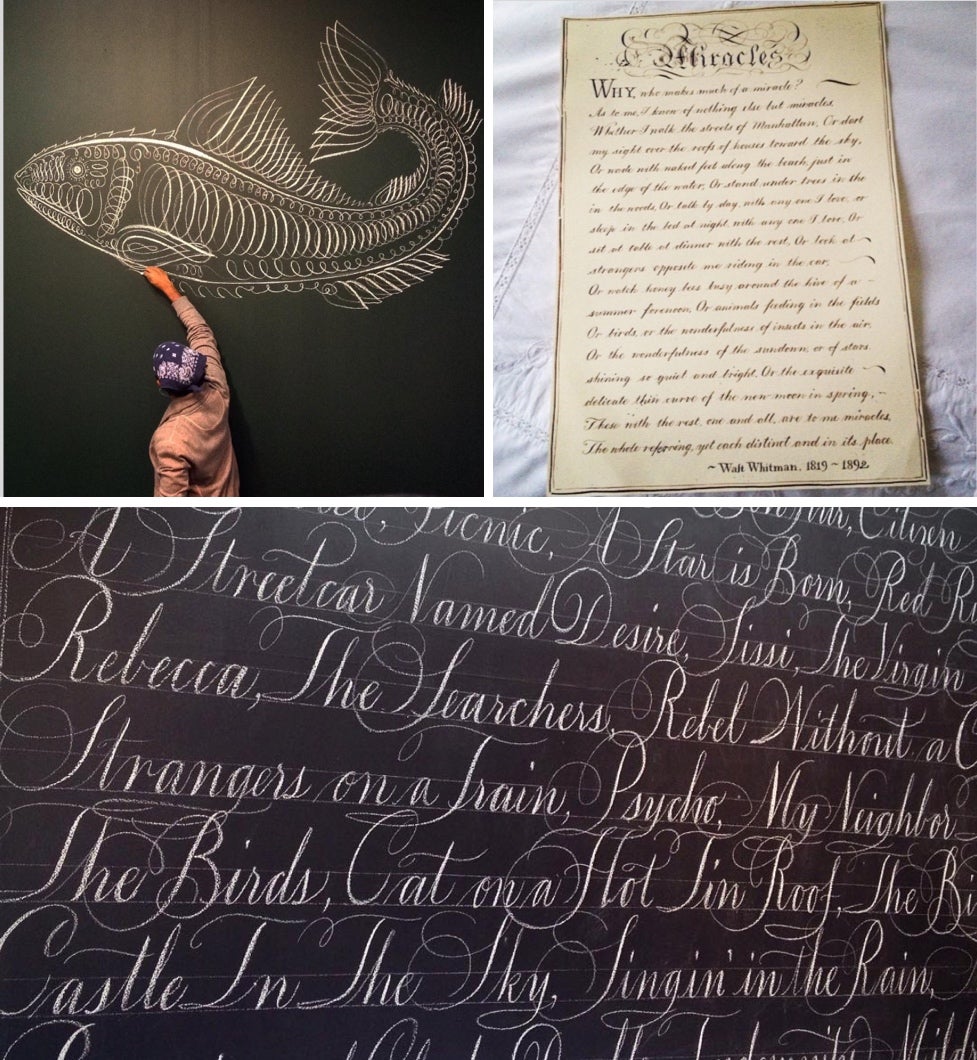 Miracles
WHY, who makes much of a miracle?
As to me, I know of nothing else but miracles,
Whether I walk the streets of Manhattan, Or dart
my sight over the roofs of houses toward the sky,
Or wade with naked feet along the beach just in
the edge of the water, Or stand under trees in the
in the woods, Or talk by day with any one I love, or
sleep in the bed at night with any one I love, Or
sit at table at dinner with the rest, Or look at
strangers opposite me riding in the car,
Or watch honey bees busy around the hive of a
summer forenoon, Or animals feeding in the fields
Or birds, or the wonderfulness of insects in the air,
Or the wonderfulness of the sundown, or of stars
shining so quiet and bright, Or the exquisite
delicate thin curve of the new moon in spring,
These with the rest, one and all, are to me miracles,
The whole referring, yet each distinct and in its place.
~ Walt Whitman, 1819 ~ 1892
Picnic, A Star is Born, Red R
Citizen
A Streetcar Named Desire, Sissi, The Virgin
Rebecca, The Searchers, Rebel Without a C
Strangers on a Train, Psycho, My Neighbor
The Birds, Cat on a Hot Tin Roof, The Bi
Castle In The Sky, Singin' in the Rain,